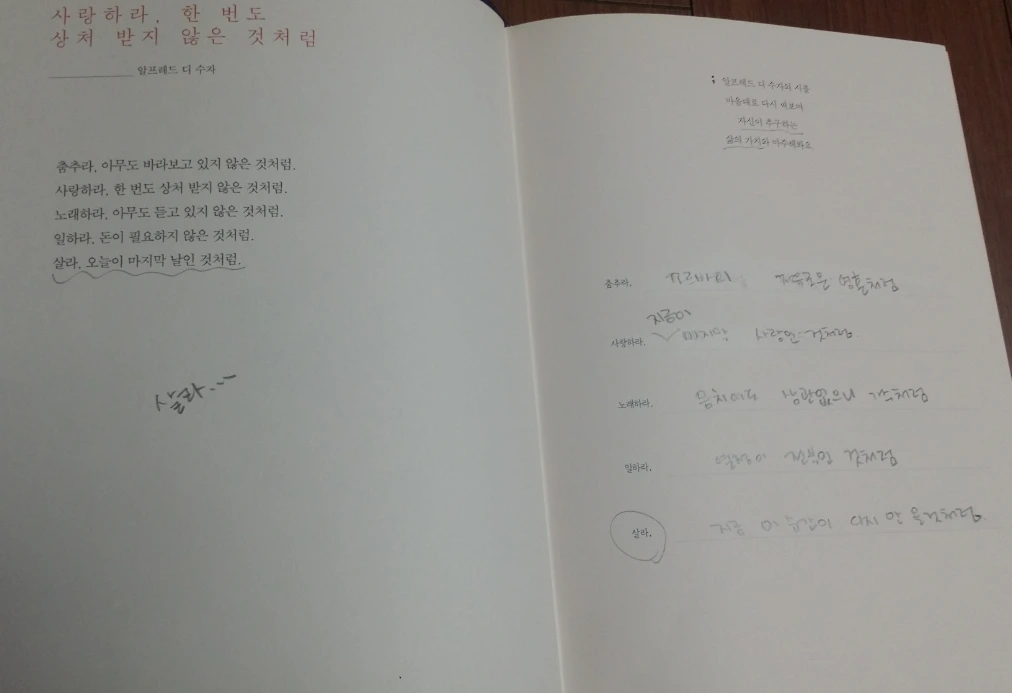 사랑하라, 한 번도
상처 받지 않은 것처럼
알프레드 디 수자
춤추라, 아무도 바라보고 있지 않은 것처럼.
사랑하라, 한 번도 상처 받지 않은 것처럼.
노래하라, 아무도 듣고 있지 않은 것처럼.
일하라, 돈이 필요하지 않은 것처럼.
살라, 오늘이 마지막 날인 것처럼.
살라...
; 알프레드 디 수자의 시를
마음대로 다시 써보며
자신이 추구하는
삶의 가치와 마주해봐요
춤추라, 자유로운 영혼처럼
지금이
사랑하라, 마지막 사랑인 것처럼
노래하라, 음치여도 상관없으니 가수처럼
일하라, 열정이 전부인 것처럼
살라, 지금 이 순간이 다시 안 올것처럼